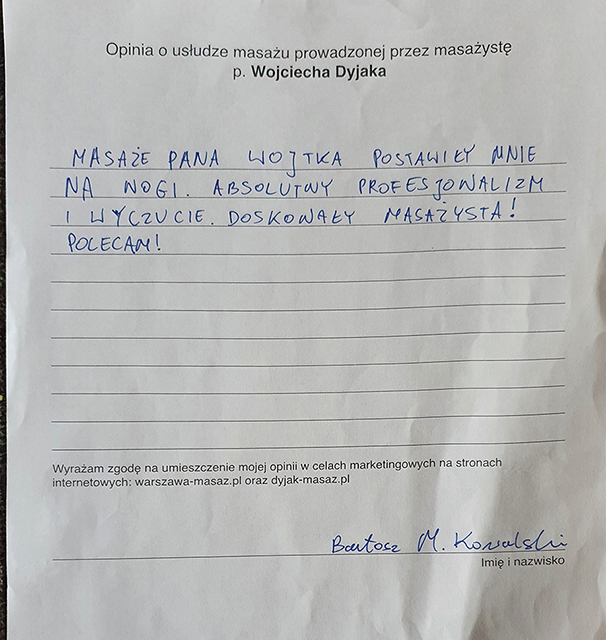 Opinia o usłudze masażu prowadzonej przez masażystę
p. Wojciecha Dyjaka
MASAŻE PANA WOJTKA POSTAWIŁY MNIE
NA NOGI. ABSOLUTNY PROFESJONALIZM
I WYCZUCIE. DOSKONAŁY MASAŻYSTA!
POLECAM!
Wyrażam zgodę na umieszczenie mojej opinii w celach marketingowych na stronach
internetowych: warszawa-masaz.pl oraz dyjak-masaz.pl
Bartosz M. Kowalski
Imię i nazwisko